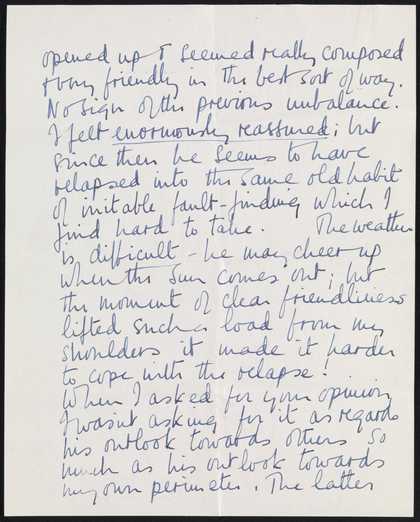 opened up & seemed really composed
& very friendly in the best sort of way.
No sign of the previous unbalance.
I felt enormously reassured; but
since then he seems to have
relapsed into the same old habit
of irritable fault-finding which I
find hard to take. The weather
is difficult - he may cheer up
when the sun comes out; but
the moment of clear friendliness
lifted such a load from my
shoulders it made it harder
to cope with the relapse!
When I asked for your opinion
I wasn't asking for it as regards
his outlook towards others so
much as his outlook towards
my own perimeter. The latter